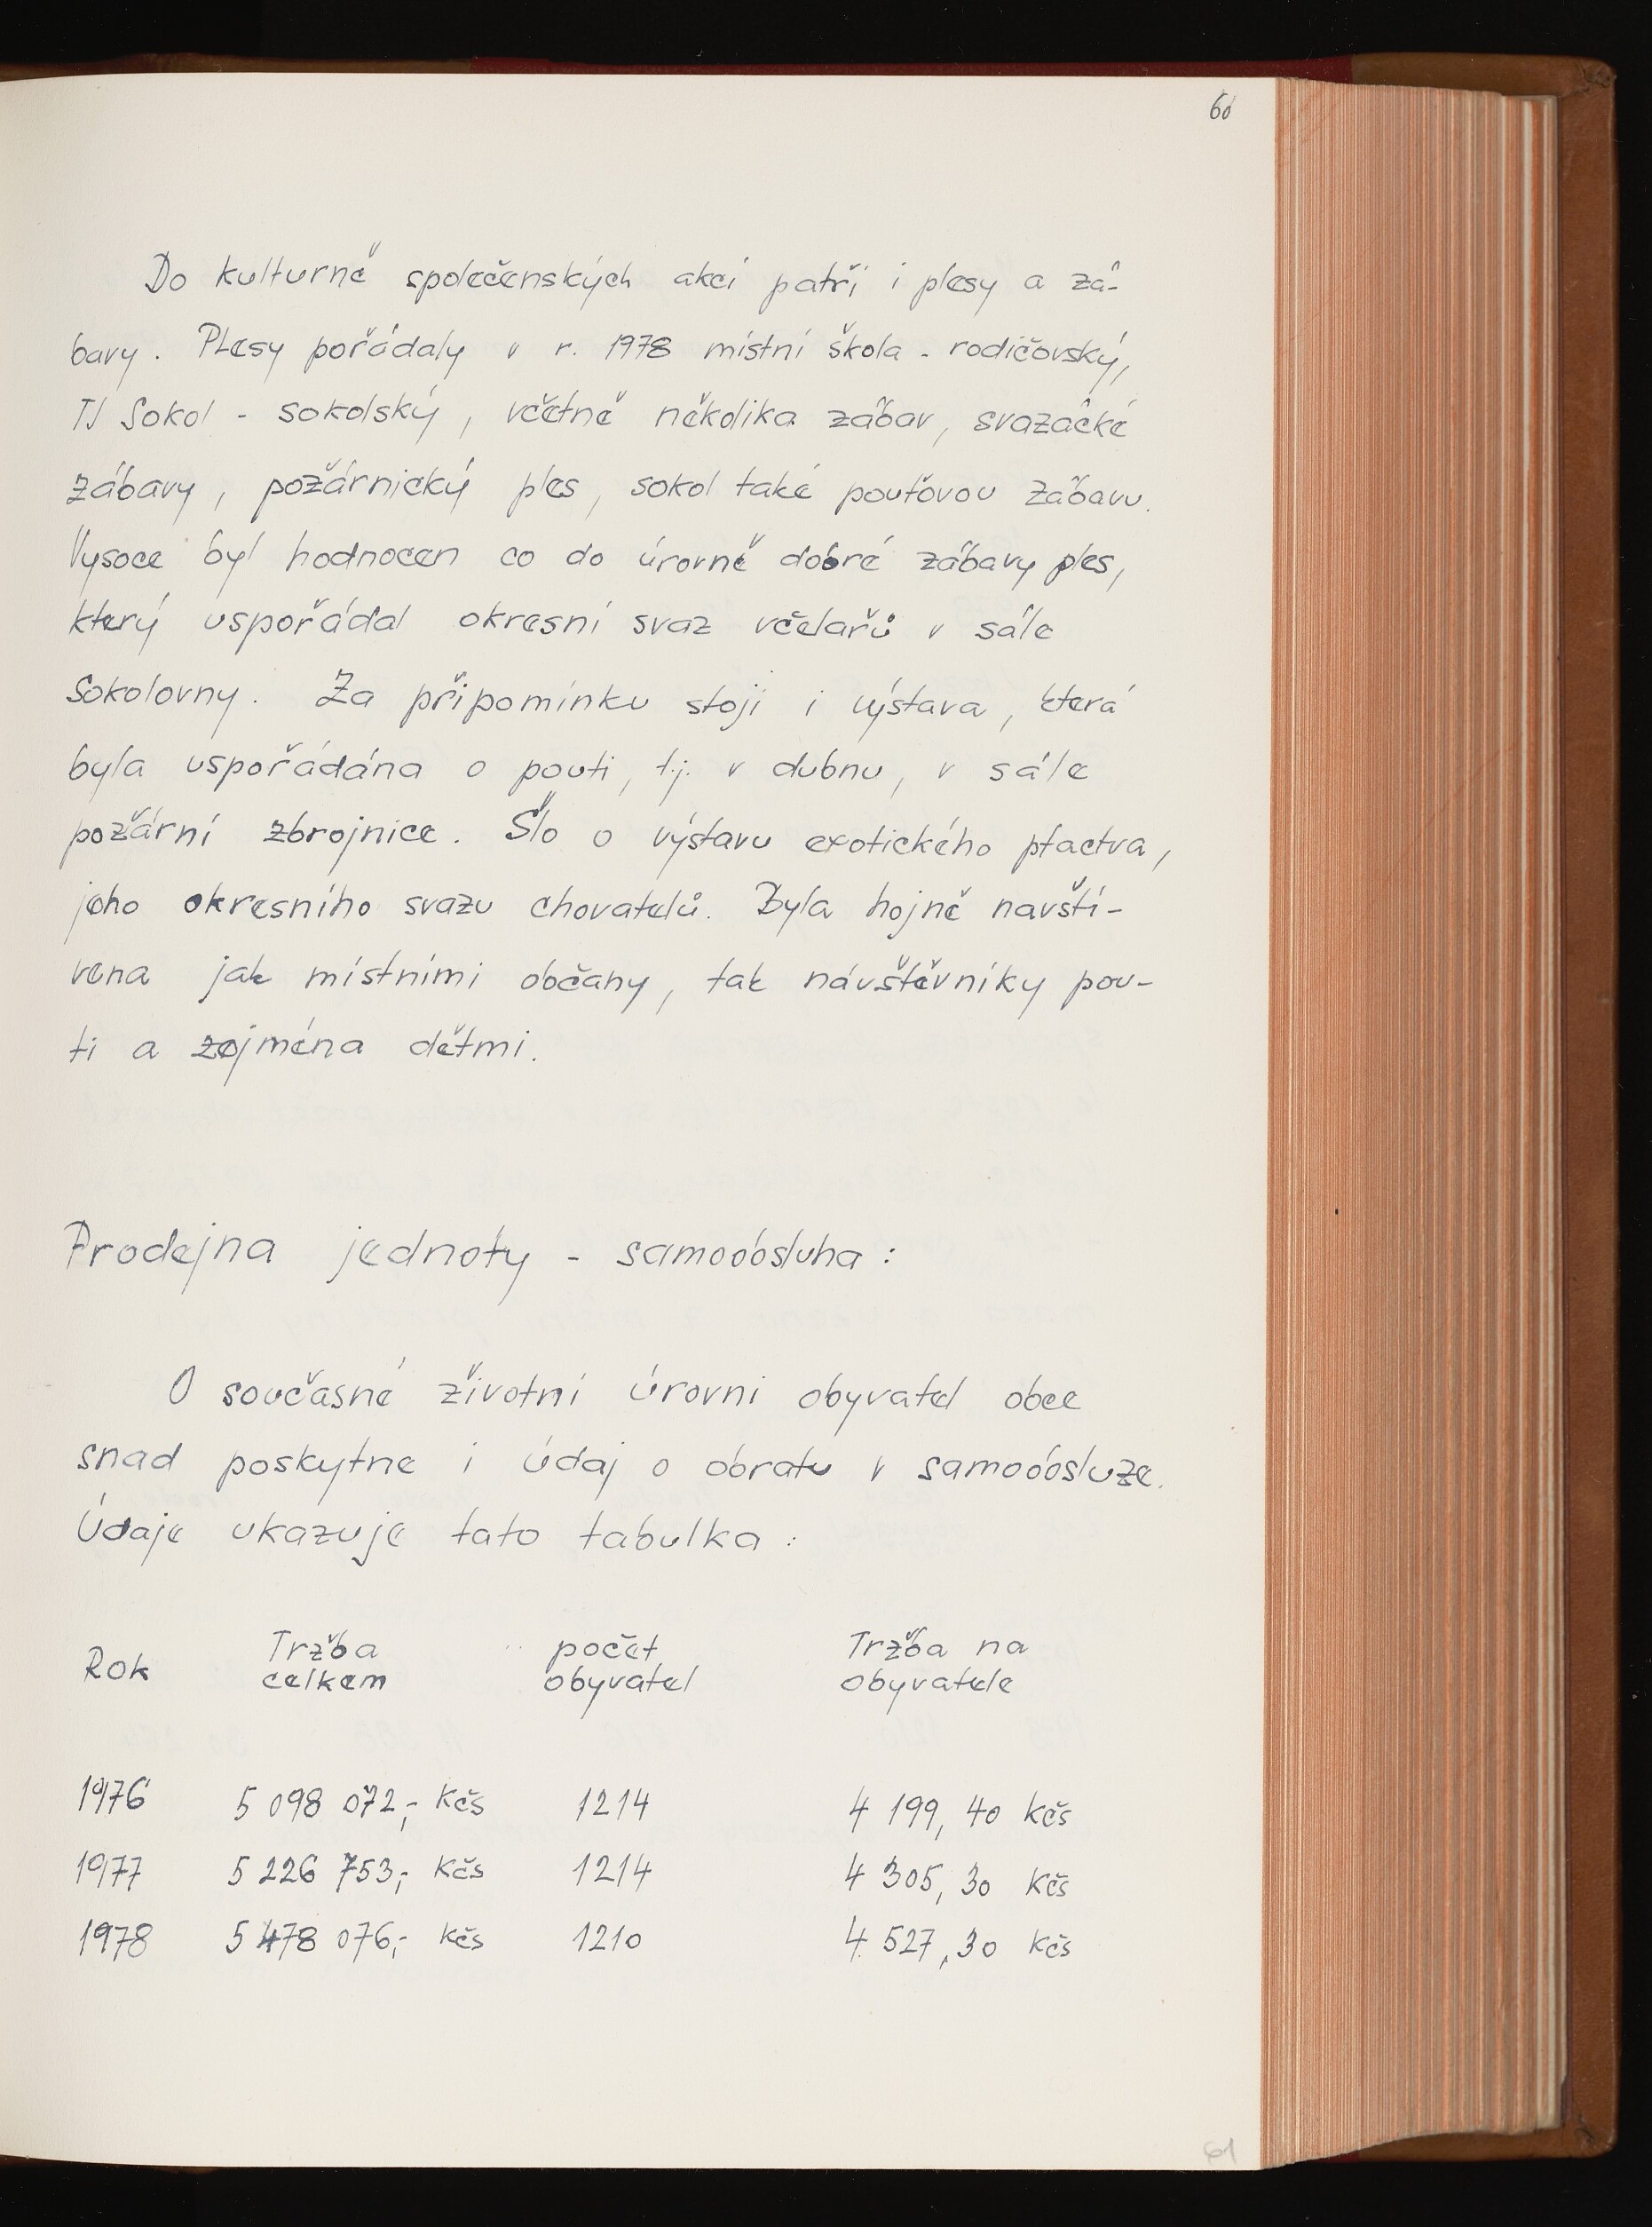 60
Do kulturně společenských akcí patří i plesy a zá-
bavy. Plesy pořádaly v r. 1978 místní škola - rodičovský,
TJ Sokol - sokolský, včetně několika zábav, svazácké
zábavy, požárnický ples, sokol také pouťovou zábavu.
Vysoce byl hodnocen co do úrovně dobré zábavy ples,
který uspořádal okresní svaz včelařů v sále
Sokolovny. Za připomínku stojí i výstava, která
byla uspořádána o pouti, t.j. v dubnu, v sále
požární zbrojnice. Šlo o výstavu exotického ptactva,
jeho okresního svazu chovatelů. Byla hojně navští-
vena jak místními občany, tak návštěvníky pou-
ti a zejména dětmi.
Prodejna jednoty - samoobsluha:
O současné životní úrovni obyvatel obce
snad poskytne i údaj o obratu v samoobsluze.
Údaje ukazuje tato tabulka:
Rok Tržba celkem počet obyvatel Tržba na obyvatele
1976 5 098 072,- Kčs 1214 4 199,40 Kčs
1977 5 226 753,- Kčs 1214 4 305,30 Kčs
1978 5 478 076,- Kčs 1210 4 527,30 Kčs
61